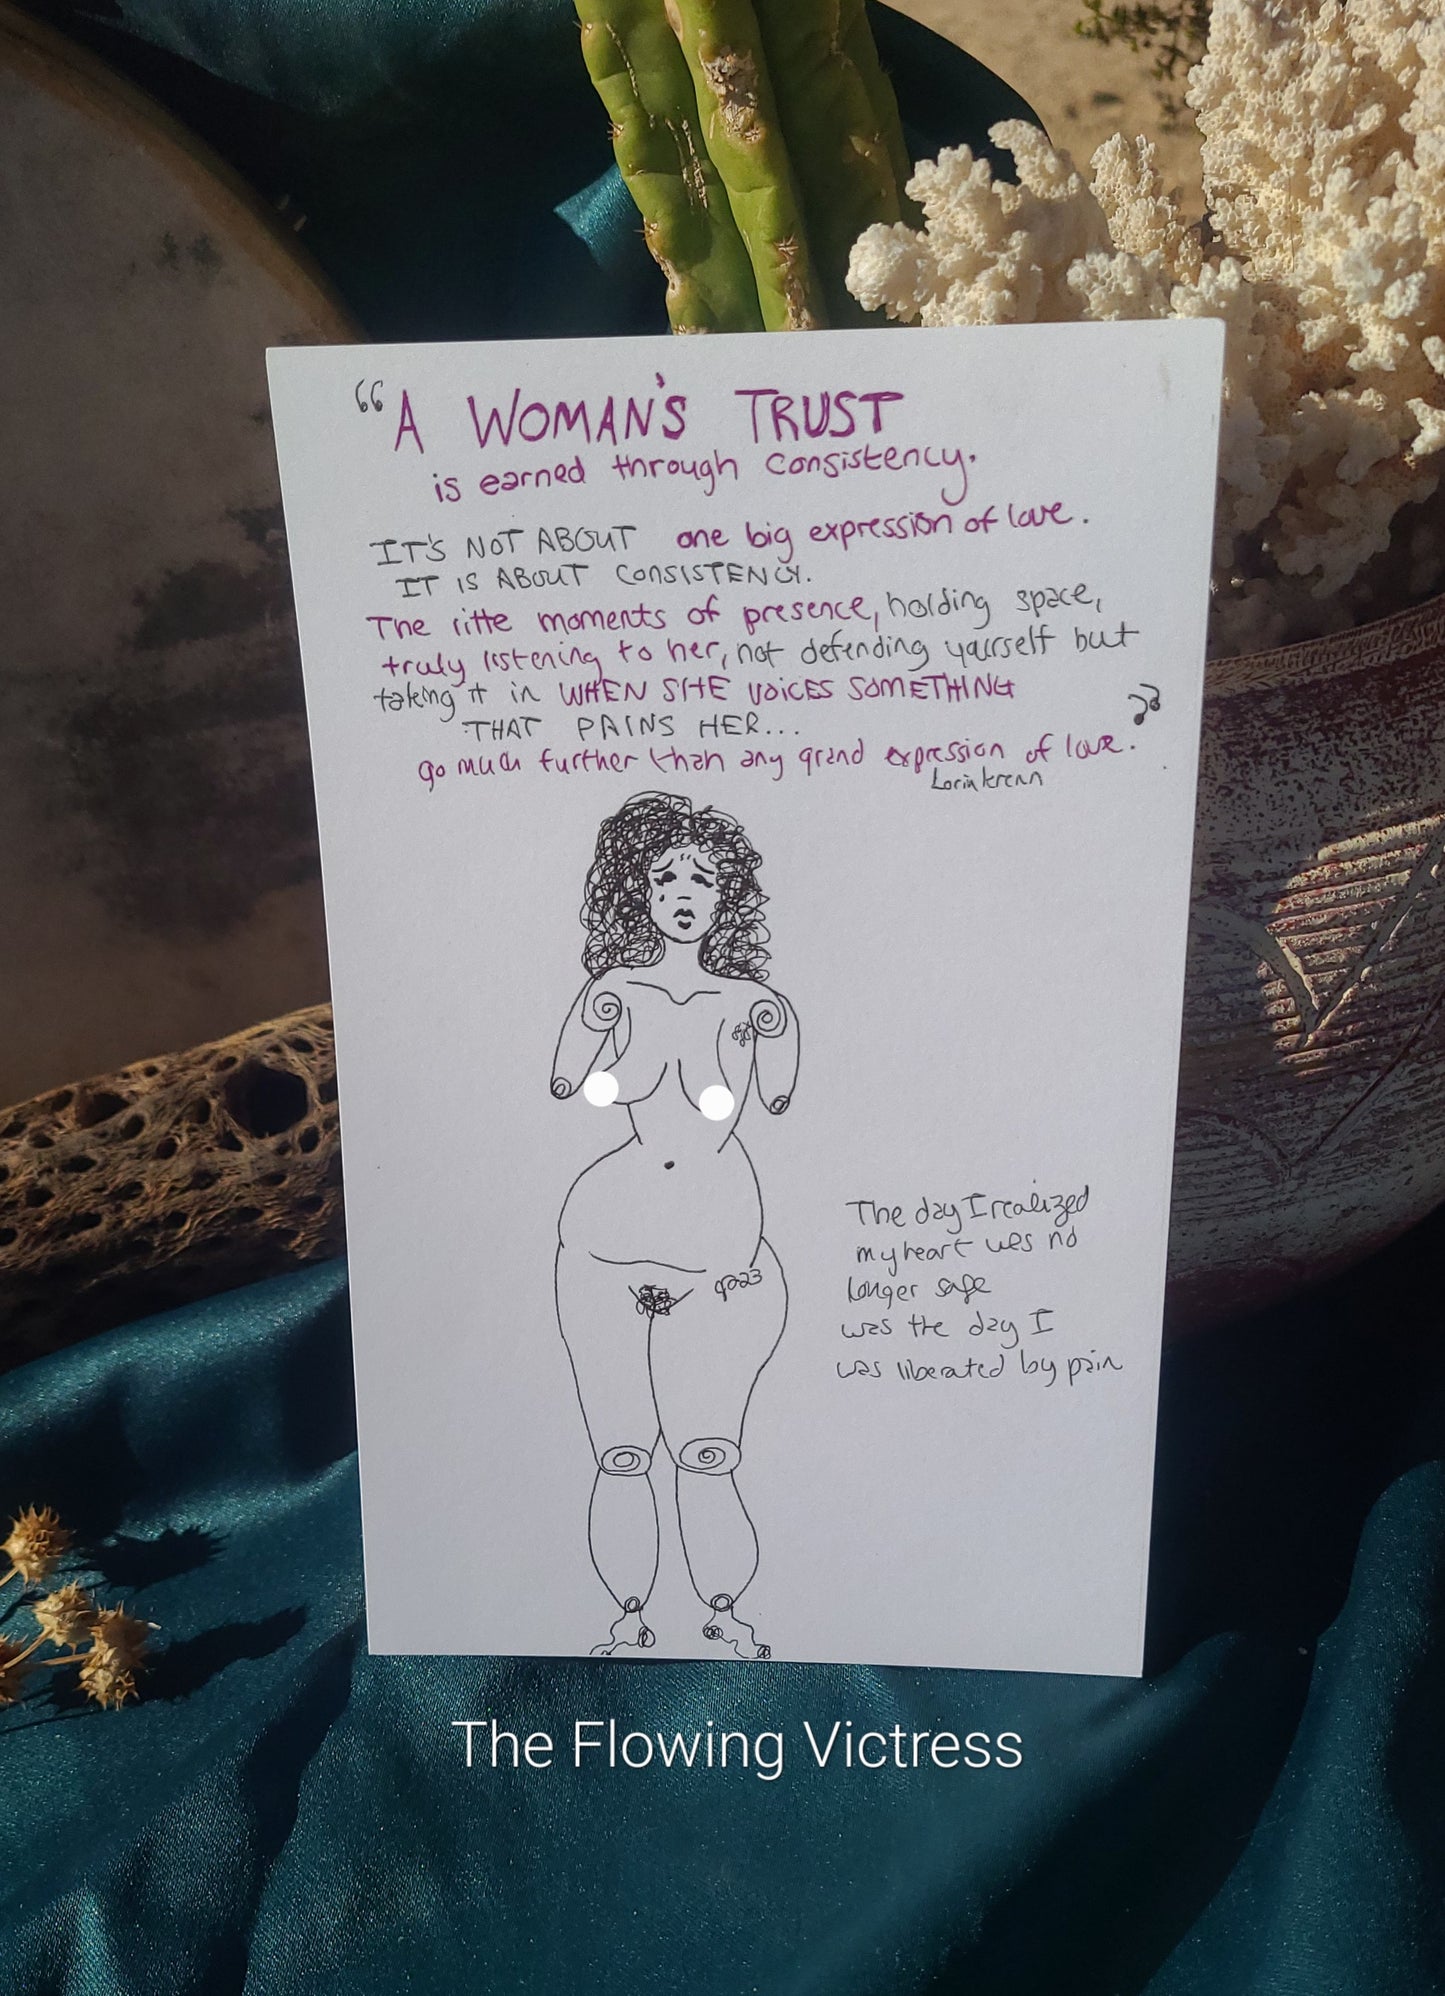 “A WOMAN'S TRUST
is earned through consistency.
IT'S NOT ABOUT one big expression of love.
IT IS ABOUT CONSISTENCY.
The little moments of presence, holding space,
truly listening to her, not defending yourself but
taking it in WHEN SHE VOICES SOMETHING
THAT PAINS HER...
go much further than any grand expression of love.”
Lorin Krenn
The day I realized
my heart was no
longer safe
was the day I
was liberated by pain
The Flowing Victress